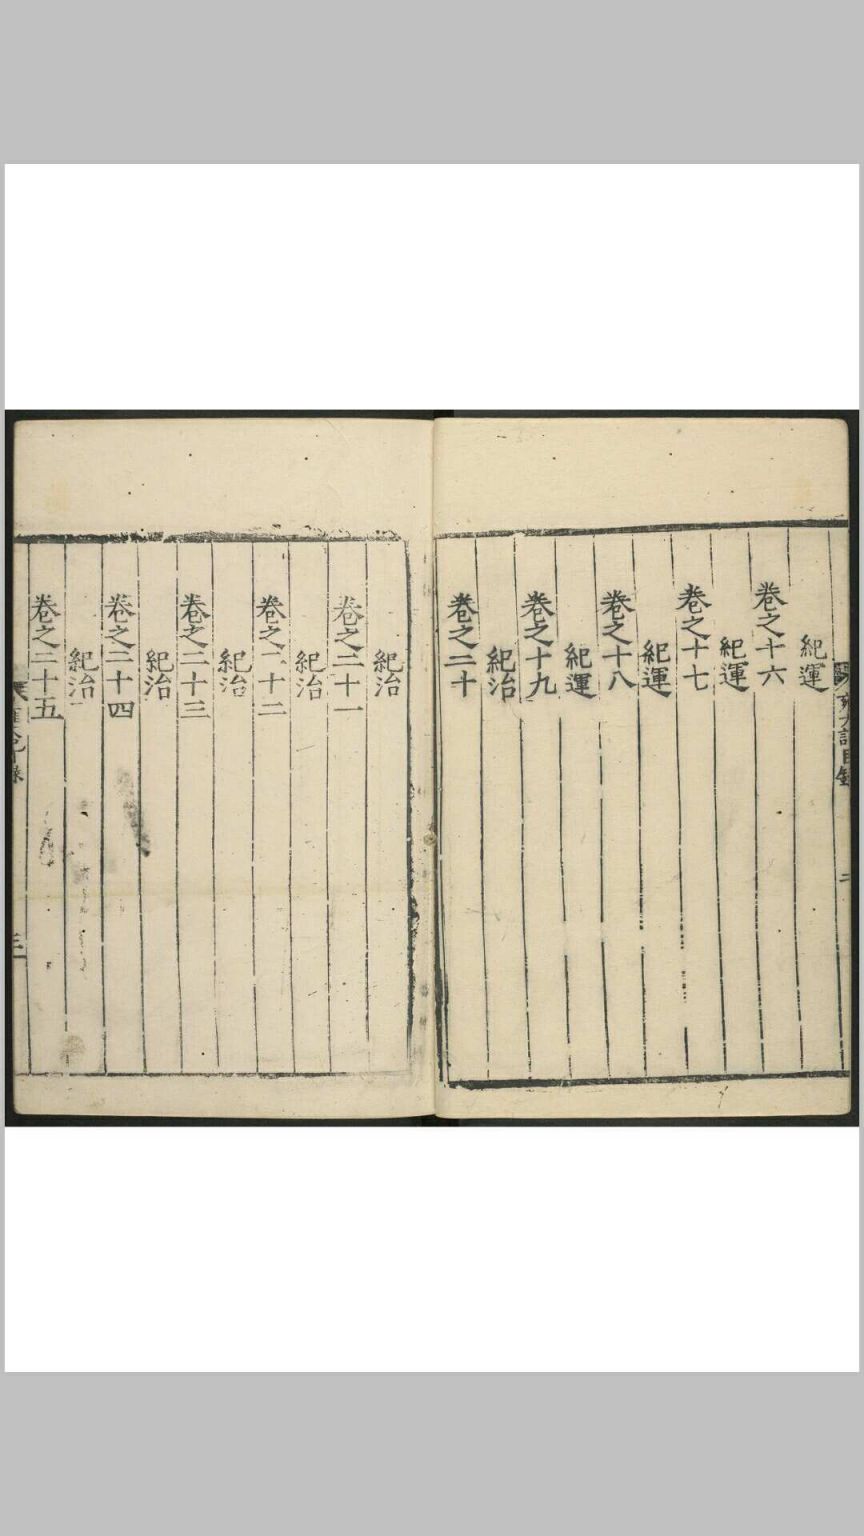 紀運
卷之十六
紀運
卷之十七
紀運
卷之十八
紀運
卷之十九
紀治
卷之二十
紀治
卷之二十一
紀治
卷之二十二
紀治
卷之二十三
紀治
卷之二十四
紀治
卷之二十五